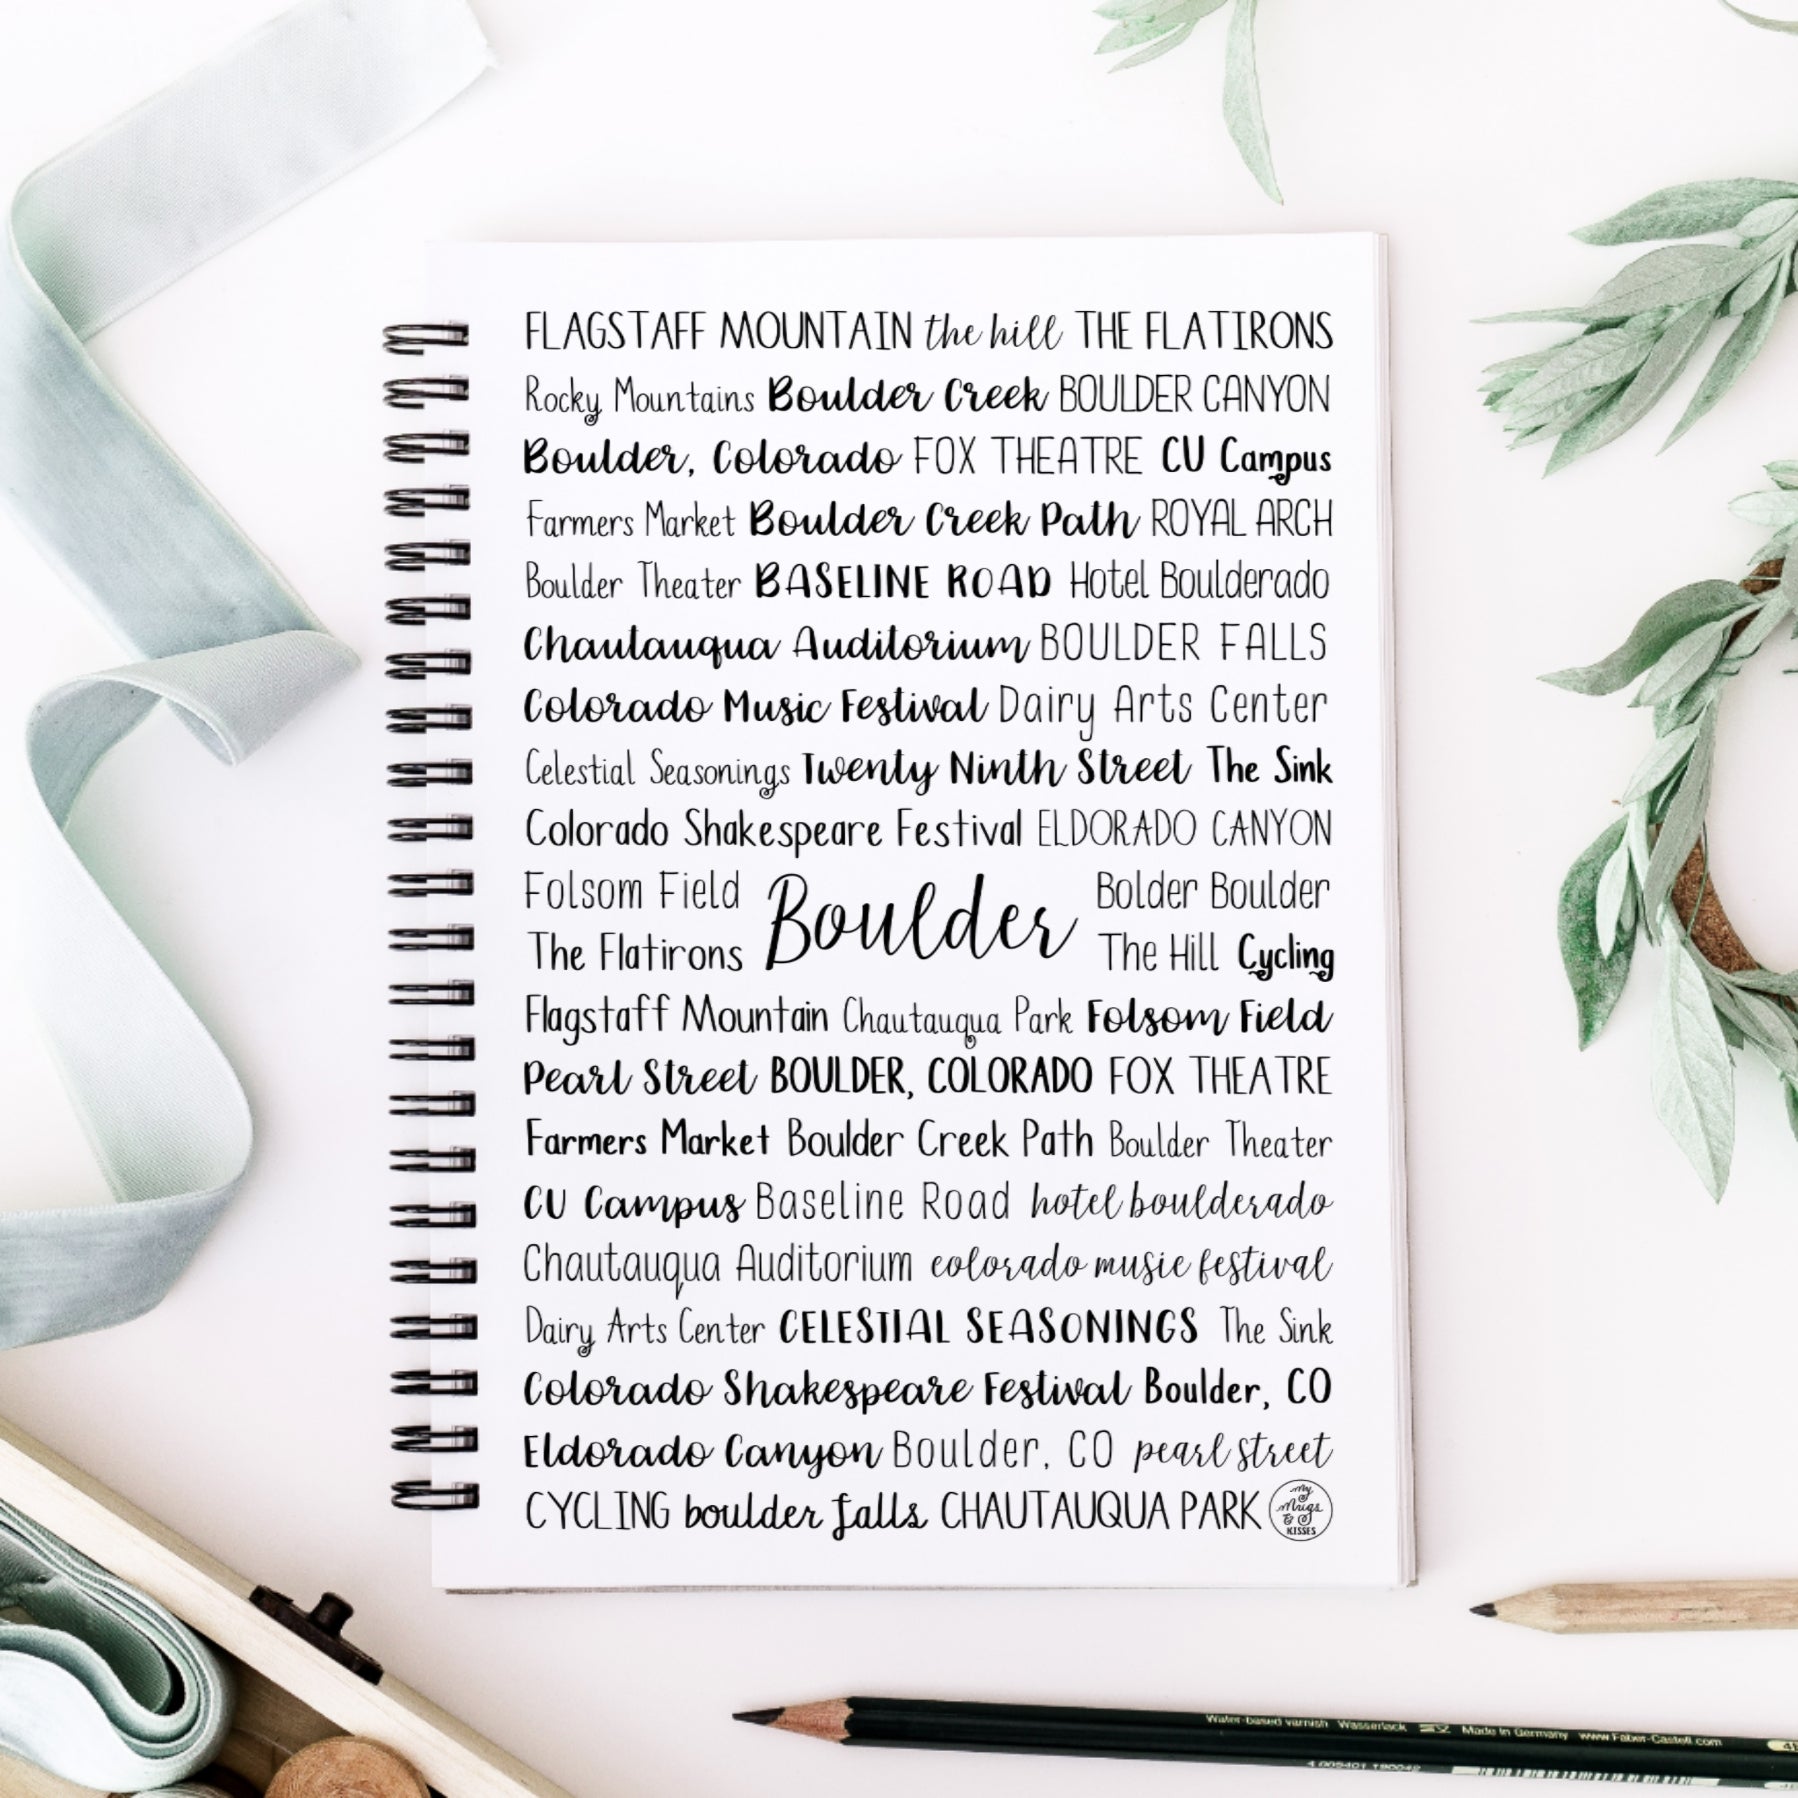 FLAGSTAFF MOUNTAIN the hill THE FLATIRONS
Rocky Mountains Boulder Creek BOULDER CANYON
Boulder, Colorado FOX THEATRE CU Campus
Farmers Market Boulder Creek Path ROYAL ARCH
Boulder Theater BASELINE ROAD Hotel Boulderado
Chautauqua Auditorium BOULDER FALLS
Colorado Music Festival Dairy Arts Center
Celestial Seasonings Twenty Ninth Street The Sink
Colorado Shakespeare Festival ELDORADO CANYON
Folsom Field Bolder Boulder
Boulder
The Flatirons The Hill Cycling
Flagstaff Mountain Chautauqua Park Folsom Field
Pearl Street BOULDER, COLORADO FOX THEATRE
Farmers Market Boulder Creek Path Boulder Theater
CU Campus Baseline Road hotel boulderado
Chautauqua Auditorium colorado music festival
Dairy Arts Center CELESTIAL SEASONINGS The Sink
Colorado Shakespeare Festival Boulder, CO
Eldorado Canyon Boulder, CO pearl street
CYCLING boulder falls CHAUTAUQUA PARK
My
Mugs
&
KISSES
Water-based varnish Wasserlack Made in Germany www.Faber-Castell.com